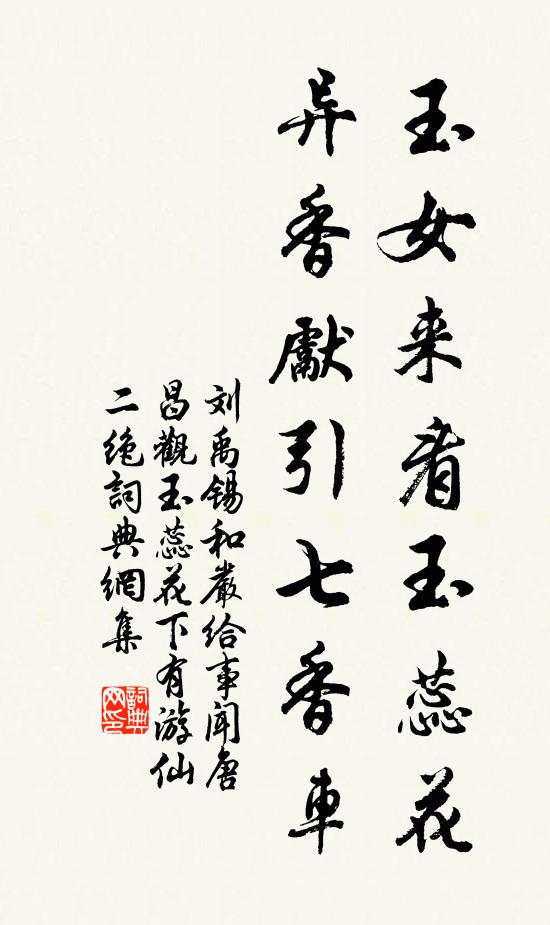 玉女来看玉蕊花
异香獻引七香車
刘禹锡和嚴给事闻唐
昌觀玉蕊花下有游仙
二绝詞典網集
詞典网印